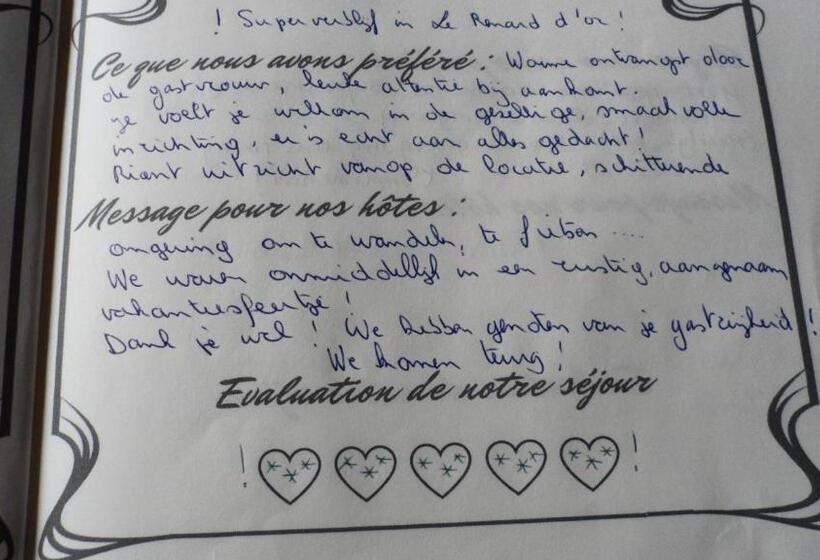 ! Superverblijf in Le Renard d'or !
Ce que nous avons préféré : Warme ontvangst door
de gastvrouw, leuke attentie bij aankomst.
Je voelt je welkom in de gezellige, smaakvolle
inrichting, er is echt aan alles gedacht !
Riant uitzicht vanop de locatie, schitterende
Message pour nos hôtes :
omgeving om te wandelen, te fietsen ....
We waren onmiddellijk in een rustig, aangenaam
vakantiesfeertje !
Dank je wel ! We hebben genoten van je gastvrijheid !
We komen terug !
Evaluation de notre séjour
! !